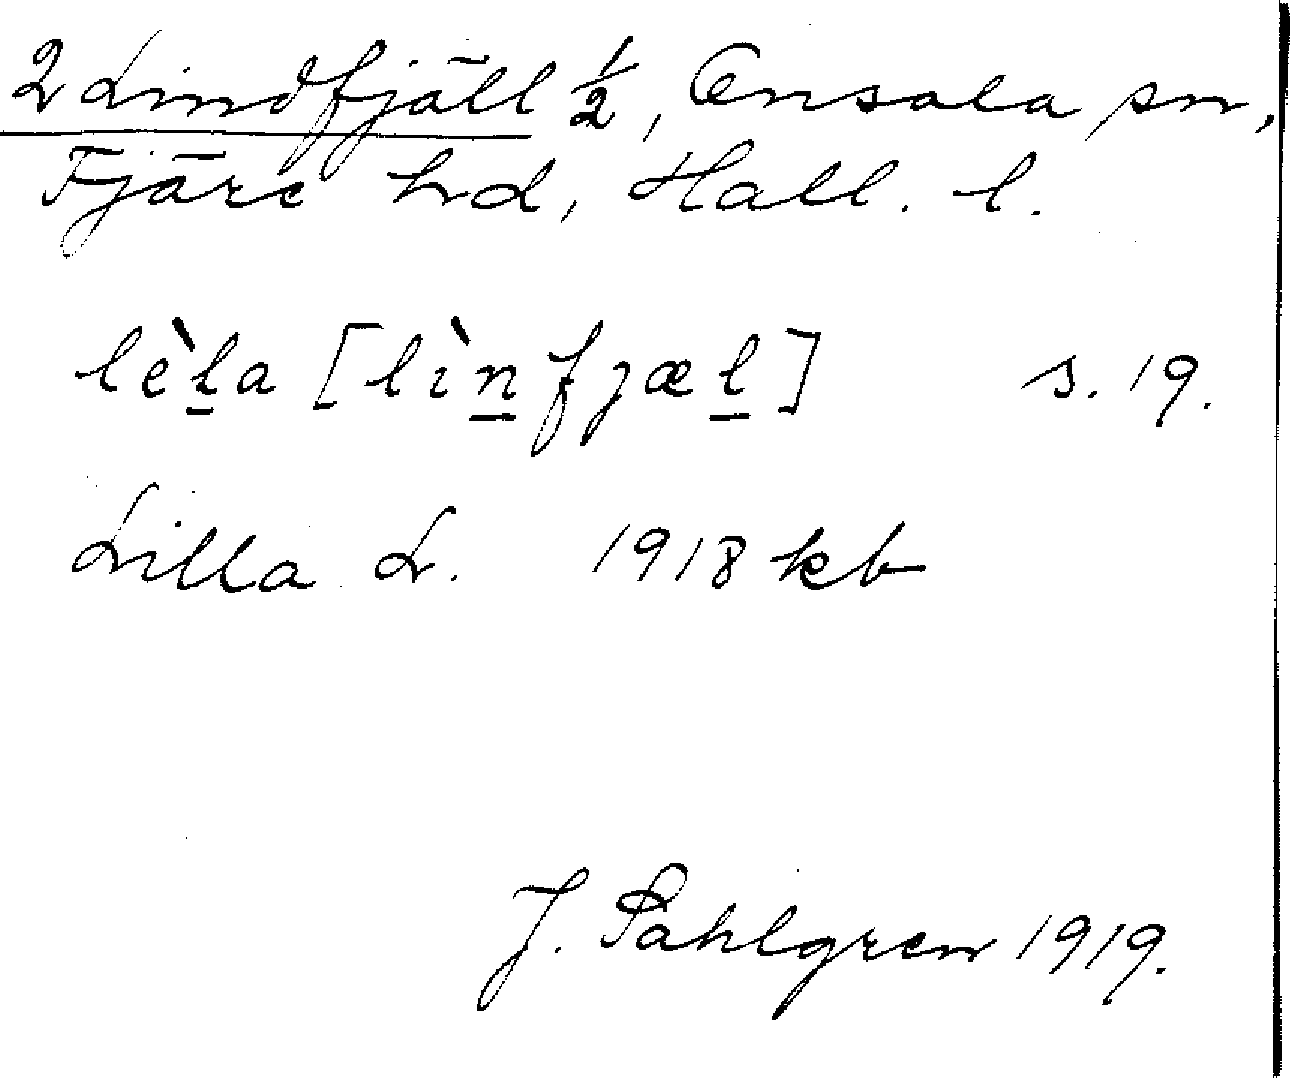 2 Lindfjäll ½, Onsala sn,
Fjäre hd, Hall. l.
lèl̲a [lìn̲fjæl̲] s. 19.
Lilla L. 1918 kb
J. Sahlgren 1919.